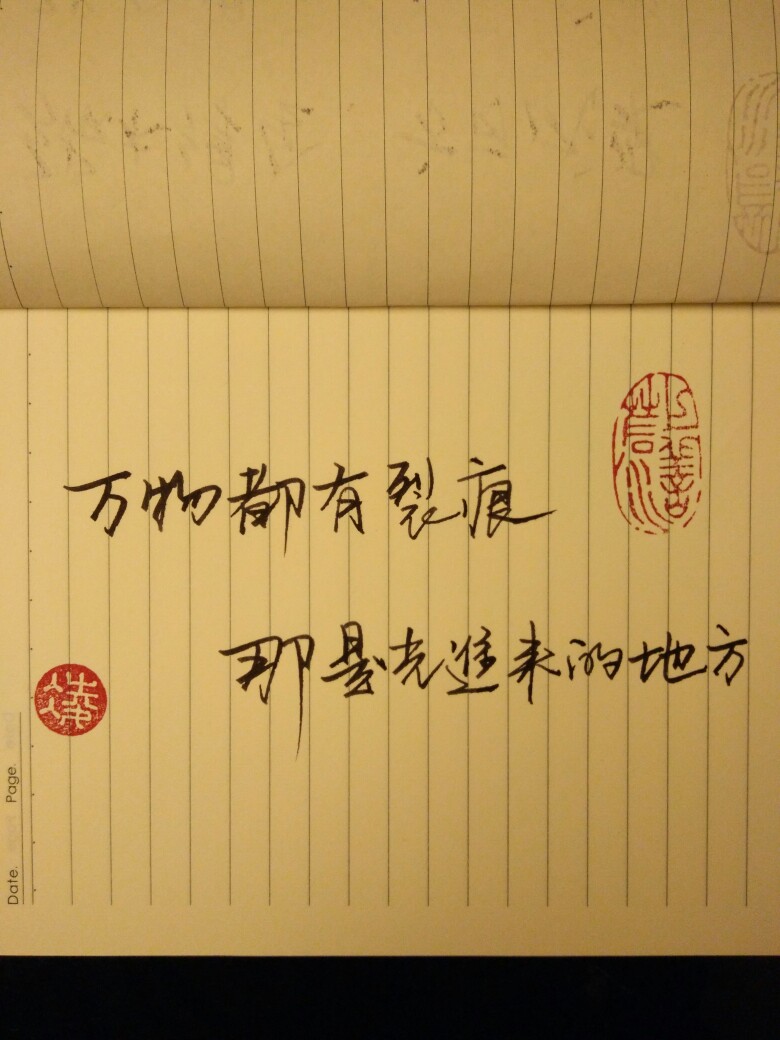 万物都有裂痕
那是光進来的地方
Date.
Page.